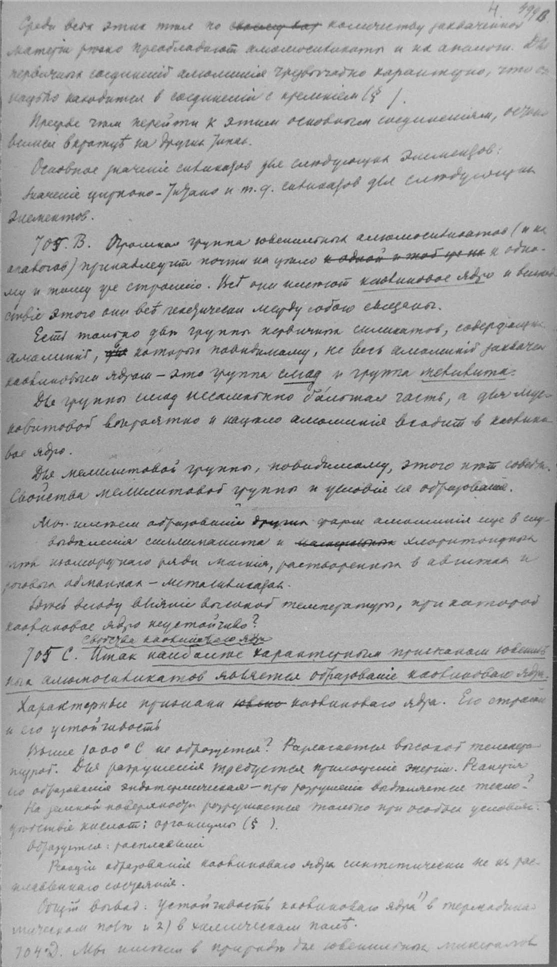 4.
Среди всех этих тел по количеству захваченной
материи резко преобладают алюмосиликаты и их аналоги. Для
первичных соединений алюминия чрезвычайно характерно, что он
нацело находится в соединении с кремнием (§ ).
Прежде чем перейти к этим основным соединениям,
вкратце на других типах.
Основное значение силикатов для следующих элементов:
Значение цирконо-титано и т.д. силикатов для следующих
элементов.
705. В. Огромная группа ювенильных алюмосиликатов (и их
аналогов) принадлежит почти нацело к одной и той же к одно-
му и тому же строению. Все они имеют каолиновое ядро и вслед-
ствие этого они все генетически между собою связаны.
Есть только две группы первичных силикатов, содержащих
алюминий, которых повидимому, не весь алюминий захвачен
каолиновым ядром - это группа слюд и группа мелилита.
Для группы слюд несомненно большая часть, а для мус-
ковитовой вероятно и нацело алюминий входит в каолино-
вое ядро.
Для мелилитовой группы, повидимому, этого нет совсем.
Свойства мелилитовой группы и условия ее образования.
Мы имеем образование других форм алюминия еще в слу-
выделения силлиманита и хлоритоидного
изоморфного ряда магния, растворенных в авгитах и
роговых обманках - метасиликатах.
всюду влияние высокой температуры, при которой
каолиновое ядро неустойчиво?
Свойства каолинового ядра
705 С. Итак наиболее характерным признаком ювениль-
ных алюмосиликатов является образование каолинового ядра.
Характерные признаки каолинового ядра. Его строение
и его устойчивость
Выше 1000°С не образуется? Разлагается высокой темпера-
турой. Для разрушения требуется приложение энергии. Реакция
его образования эндотермическая - при разрушении выделяется тепло?
На земной поверхности разрушается только при особых условиях:
присутствие кислот; организмы (§ ).
Образуется: расплавлений
Реакции образования каолинового ядра синтетически не из рас-
плавленного состояния.
Общий вывод: устойчивость каолинового ядра 1) в термодина-
мическом поле и 2) в химическом поле.
704 D. Мы имеем в природе для ювенильных минералов